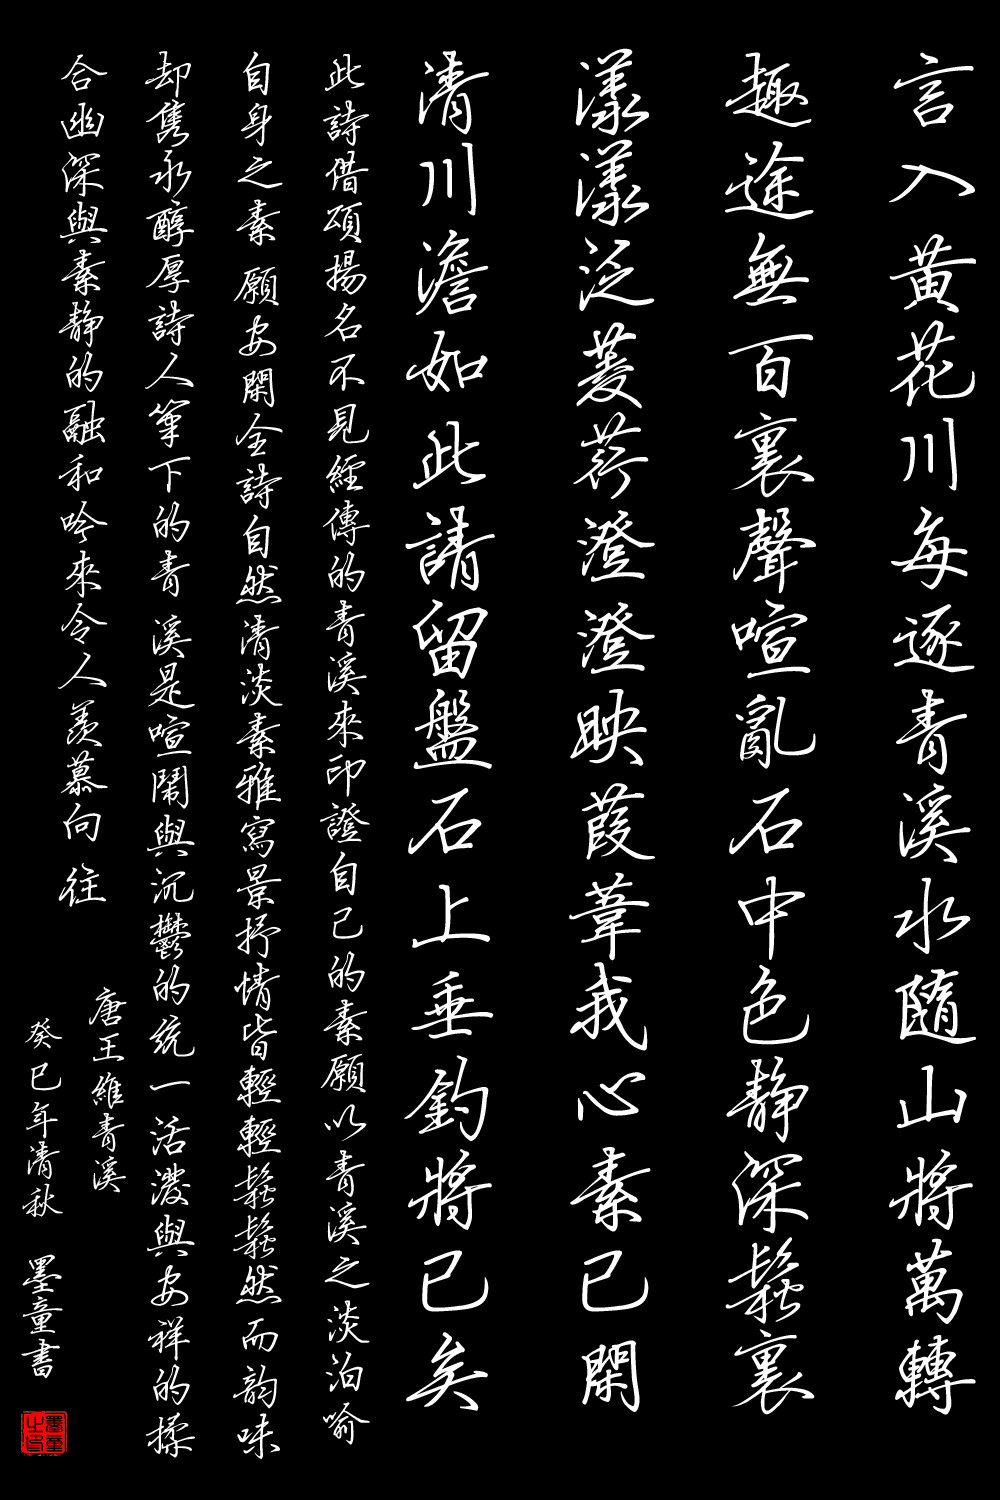 言入黃花川每逐青溪水隨山將萬轉
趣途無百裏聲喧亂石中色靜深鬆裏
漾漾泛菱荇澄澄映葭葦我心素已閑
清川澹如此請留盤石上垂釣將已矣
此詩借頌揚名不見經傳的青溪來印證自己的素願以青溪之淡泊喻
自身之素願安閑全詩自然清淡素雅寫景抒情皆輕輕鬆鬆然而韵味
却雋永醇厚詩人筆下的青溪是喧鬧與沉鬱的統一活潑與安祥的揉
合幽深與素靜的融和吟來令人羨慕向往
唐王維青溪
癸巳年清秋 墨童書
墨童之印